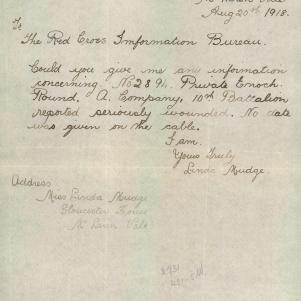 Aug 20th 1918.
To
The Red Cross Imformation Bureau.
Could you give me any information
concerning No 2894. Private Enoch
Round. A. Company, 10th Battalion
reported seriously wounded. No date
was given on the cable.
I am.
Yours Truly
Linda Mudge
Address.
Miss Linda Mudge
Gloucester House
Mc Laren Vale